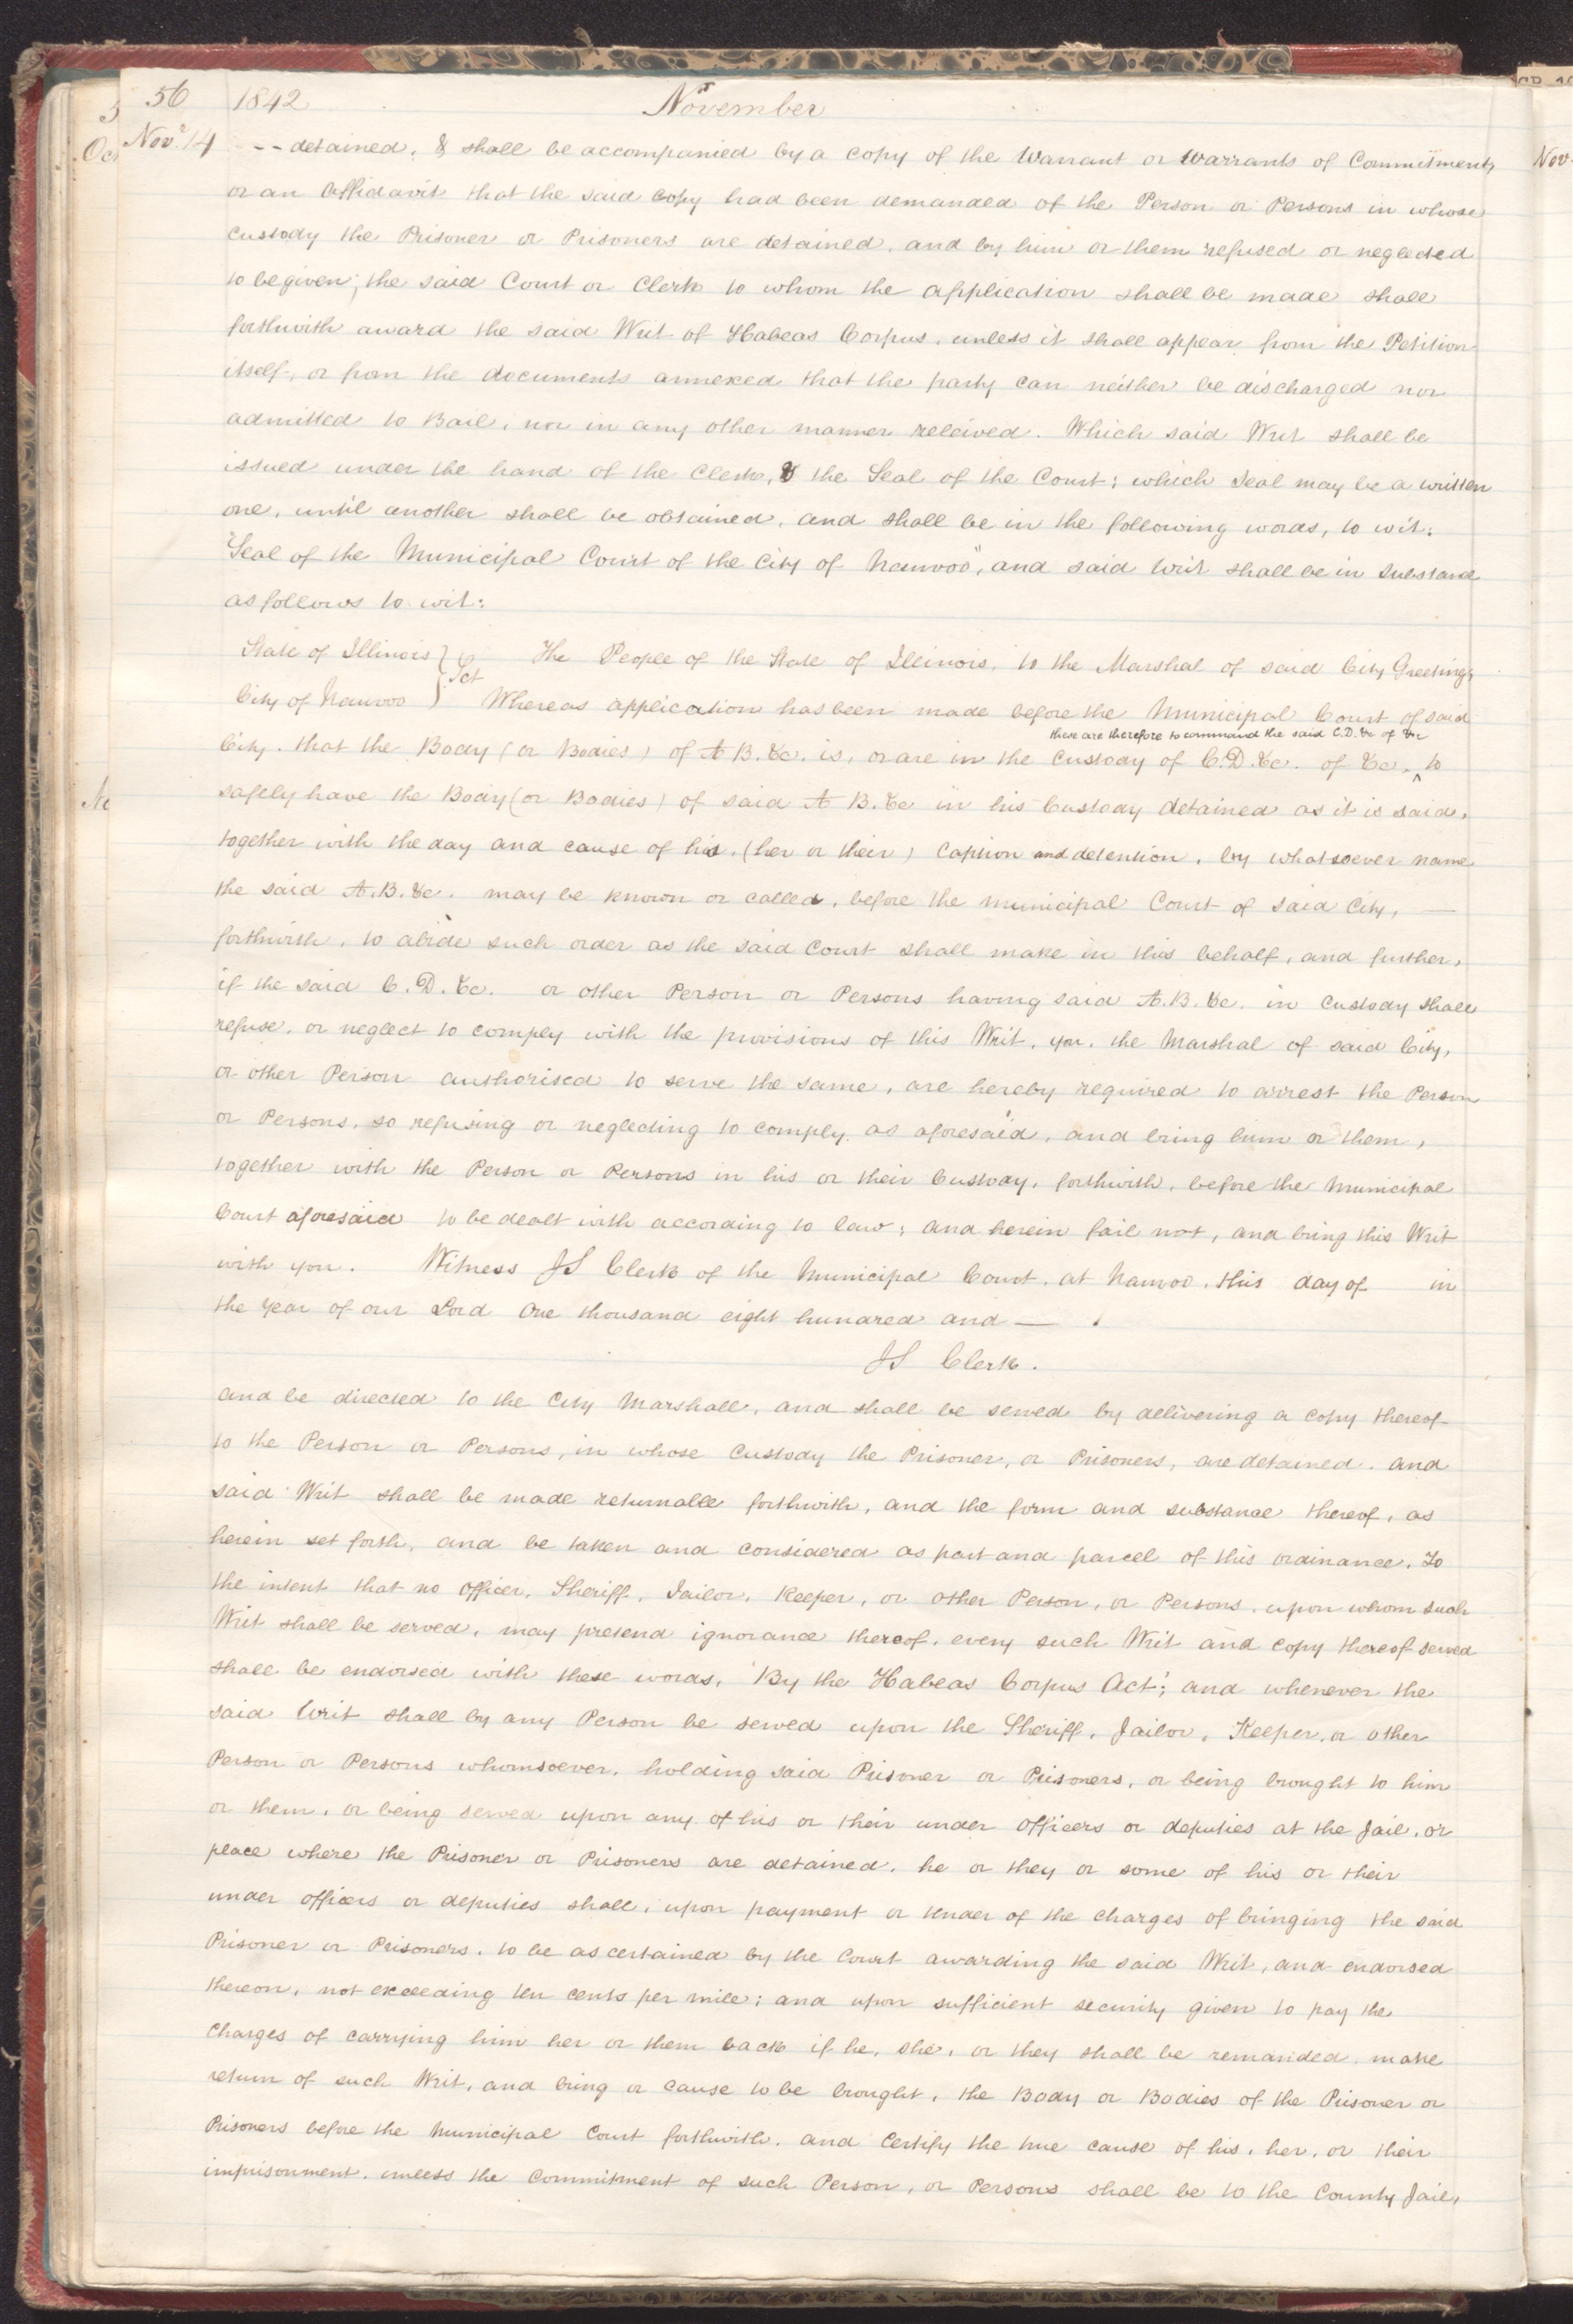 56 1842 November
Nov.r 14 -- detained, & shall be accompanied by a copy of the Warrant or Warrants of Commitment,
or an Affidavit that the said copy had been demanded of the Person or Persons in whose
custody the Prisoner or Prisoners are detained, and by him or them refused or neglected
to be given; the said Court or Clerk to whom the application shall be made shall
forthwith award the said Writ of Habeas Corpus, unless it shall appear from the Petition
itself, or from the documents annexed that the party can neither be discharged nor
admitted to Bail, nor in any other manner releived. Which said Writ shall be
issued under the hand of the Clerk, & the Seal of the Court; which Seal may be a written
one, until another shall be obtained, and shall be in the following words, to wit:
"Seal of the Municipal Court of the City of Nauvoo", and said Writ shall be in substance
as follows to wit:
State of Illinois } Sct The People of the State of Illinois, to the Marshal of said City Greeting;
City of Nauvoo } Whereas application has been made before the Municipal Court of said
these are therefore to command the said C.D. &c of &c
City, that the Body (or Bodies) of A B. &c. is, or are in the Custody of C.D. &c. of &c. ^ to
safely have the Body (or Bodies) of said A B. &c in his Custody detained as it is said,
together with the day and cause of his (her or their) Caption and detention, by whatsoever name
the said A.B. &c. may be known or called, before the Municipal Court of said City, —
forthwith, to abide such order as the said Court shall make in this behalf, and further,
if the said C.D. &c. or other Person or Persons having said A.B. &c. in Custody shall
refuse, or neglect to comply with the provisions of this Writ, you, the Marshal of said City,
or other Person authorised to serve the same, are hereby required to arrest the Person
or Persons, so refusing or neglecting to comply as aforesaid, and bring him or them,
together with the Person or Persons in his or their Custody, forthwith, before the Municipal
Court aforesaid to be dealt with according to law; and herein fail not, and bring this Writ
with you. Witness JS Clerk of the Municipal Court, at Nauvoo, this day of in
the Year of our Lord One thousand eight hundred and — .
JS Clerk.
and be directed to the City Marshall, and shall be served by delivering a copy thereof
to the Person or Persons, in whose Custody the Prisoner, or Prisoners, are detained. and
said Writ shall be made returnable forthwith, and the form and substance thereof, as
herein set forth, and be taken and considered as part and parcel of this ordinance. To
the intent that no Officer, Sheriff, Jailor, Keeper, or other Person, or Persons, upon whom such
Writ shall be served, may pretend ignorance thereof, every such Writ and copy thereof served
shall be endorsed with these words, 'By the Habeas Corpus Act'; and whenever the
said Writ shall by any Person be served upon the Sheriff, Jailor, Keeper, or other
Person or Persons whomsoever, holding said Prisoner or Prisoners, or being brought to him
or them, or being served upon any of his or their under Officers or deputies at the Jail, or
place where the Prisoner or Prisoners are detained, he or they or some of his or their
under officers or deputies shall, upon payment or tender of the charges of bringing the said
Prisoner or Prisoners, to be ascertained by the Court awarding the said Writ, and endorsed
thereon, not exceeding ten cents per mile; and upon sufficient security given to pay the
charges of carrying him her or them back if he, she, or they shall be remanded, make
return of such Writ, and bring or cause to be brought, the Body or Bodies of the Prisoner or
Prisoners before the Municipal Court forthwith, and Certify the true cause of his, her, or their
imprisonment, unless the Commitment of such Person, or Persons shall be to the County Jail,